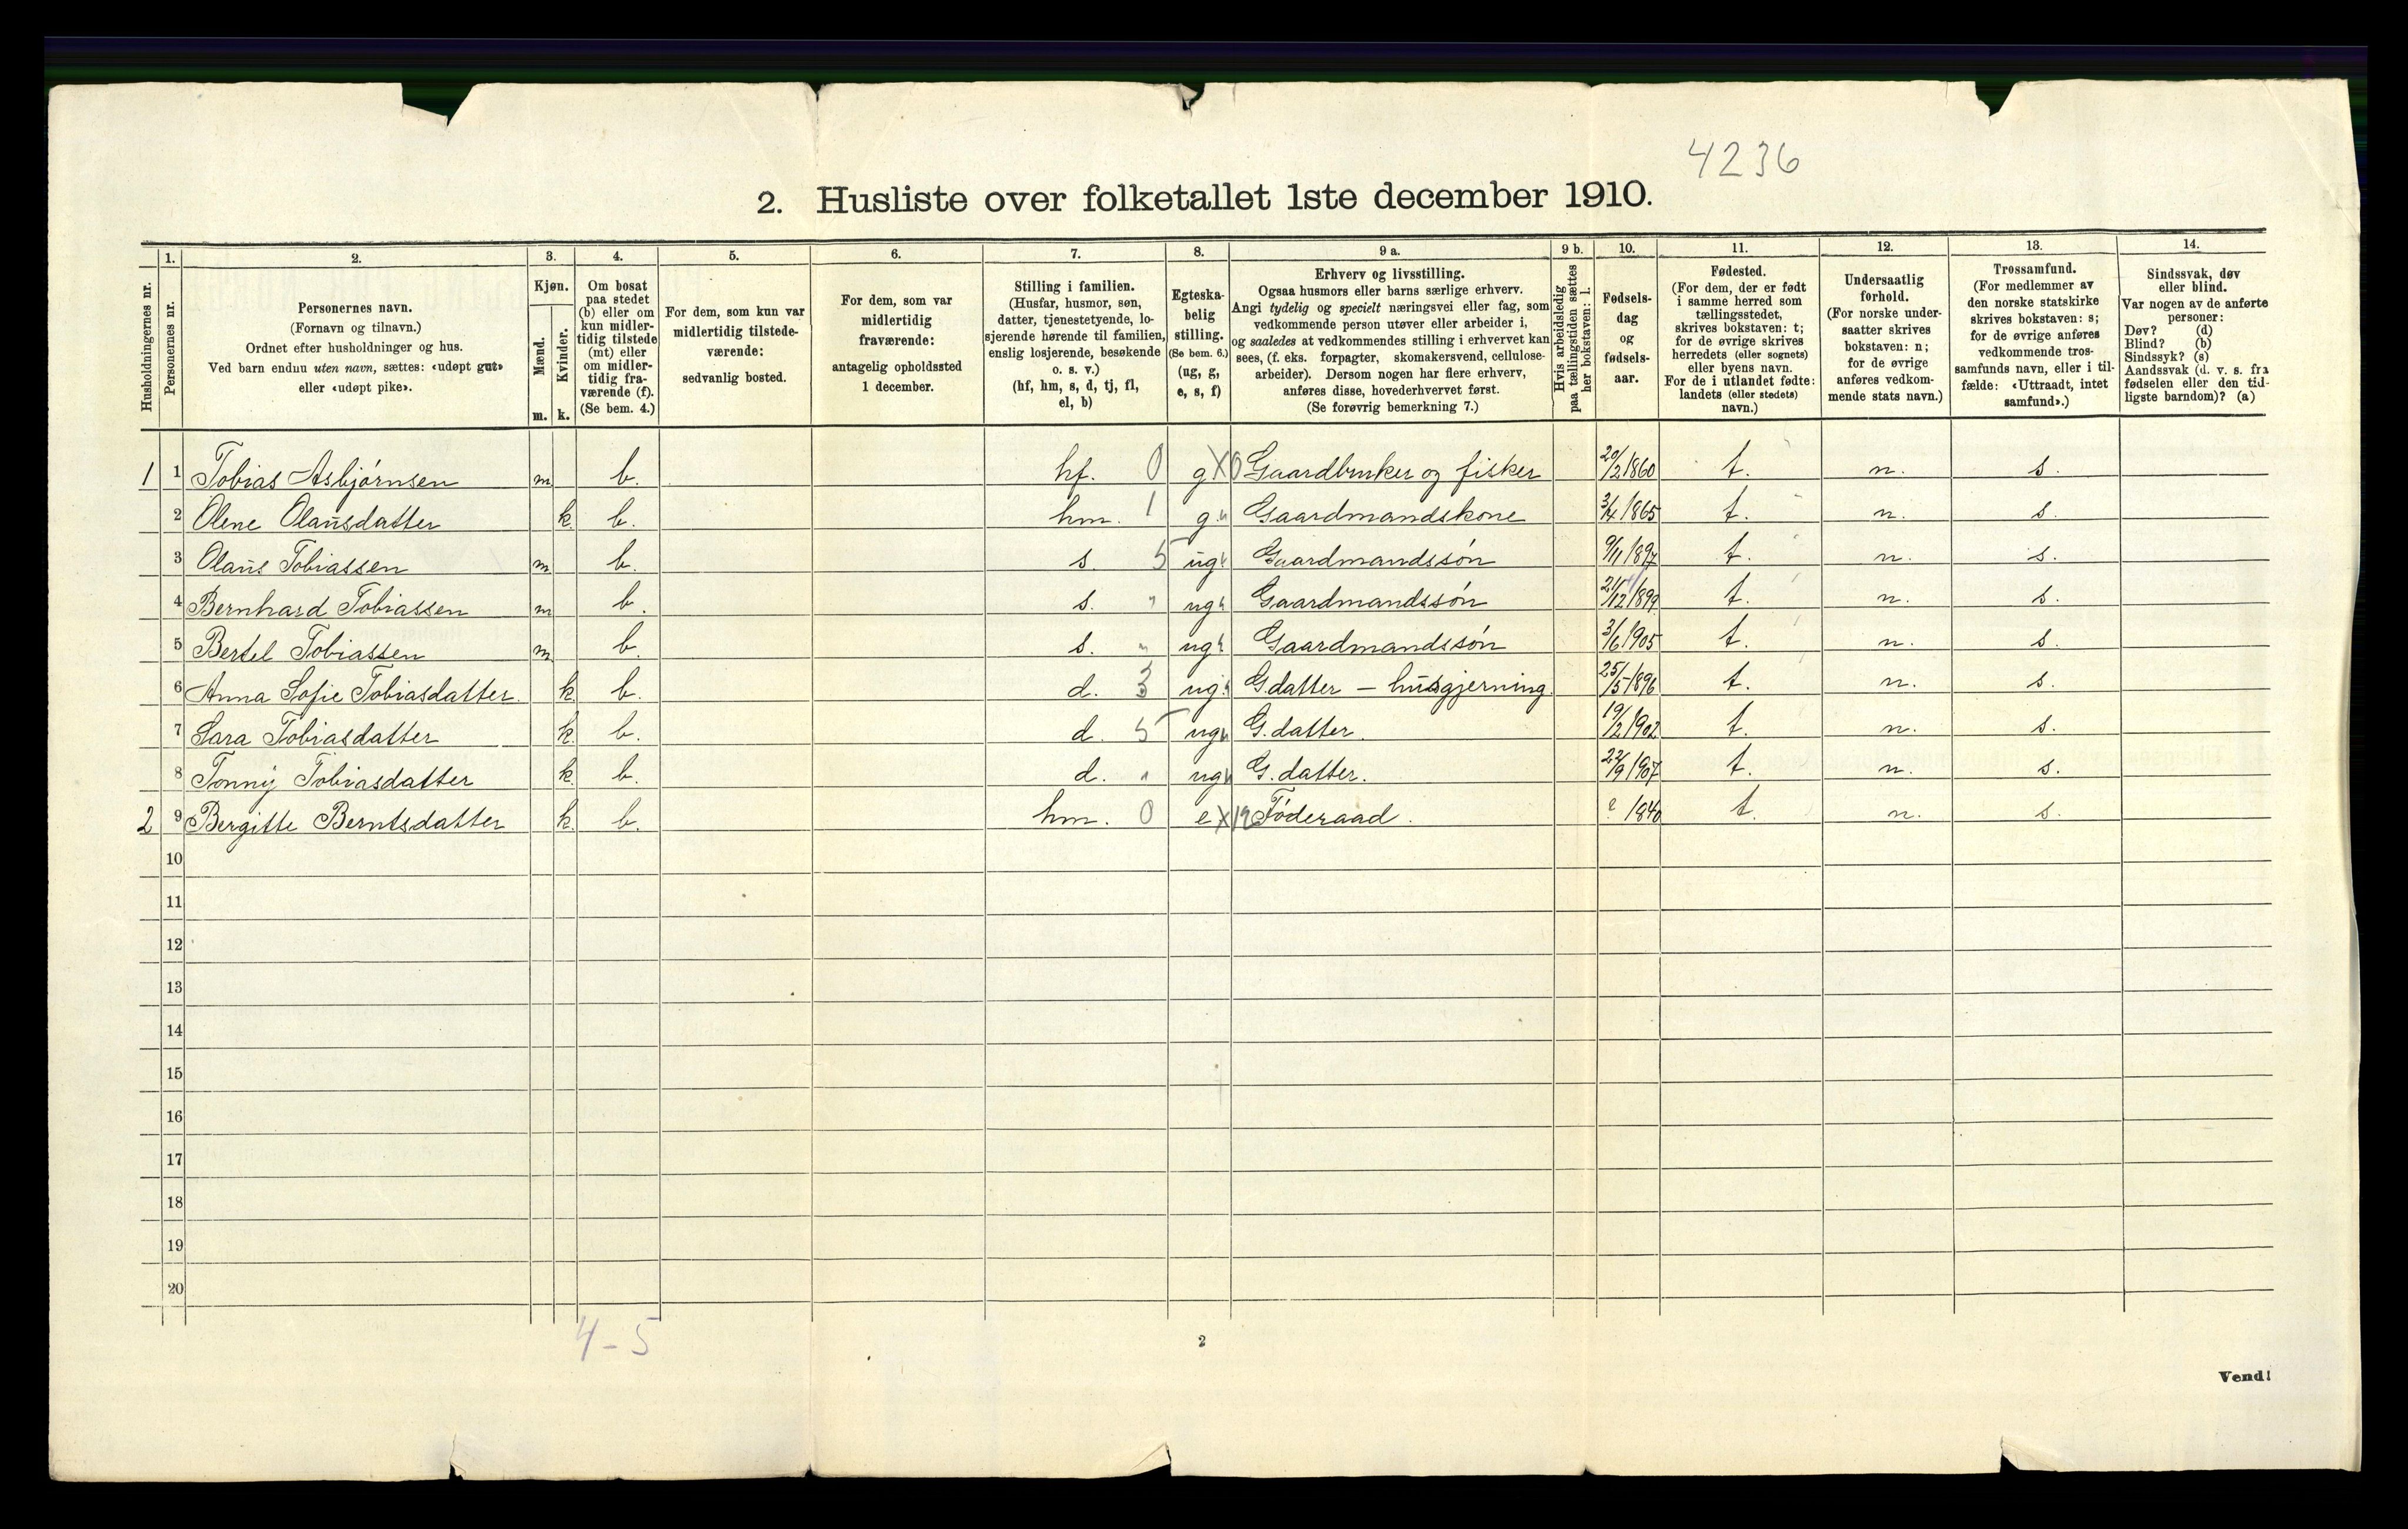 4236
2. Husliste over folketallet 1ste december 1910.
Husholdningernes nr.
1.
Personernes nr.
2.
Personernes navn.
(Fornavn og tilnavn.)
Ordnet efter husholdninger og hus.
Ved barn endnu uten navn, sættes: «udøpt gut»
eller «udøpt pike».
3.
Kjøn.
Mænd.
m.
Kvinder.
k.
4.
Om bosat
paa stedet
(b) eller om
kun midler-
tidig tilstede
(mt) eller
om midler-
tidig fra-
værende (f).
(Se bem. 4.)
5.
For dem, som kun var
midlertidig tilstede-
værende:
sedvanlig bosted.
6.
For dem, som var
midlertidig
fraværende:
antagelig opholdssted
1 december.
7.
Stilling i familien.
(Husfar, husmor, søn,
datter, tjenestetyende, lo-
sjerende hørende til familien,
enslig losjerende, besøkende
o. s. v.)
(hf, hm, s, d, tj, fl,
el, b)
8.
Egteska-
belig
stilling.
(Se bem. 6.)
(ug, g,
e, s, f)
9 a.
Erhverv og livsstilling.
Ogsaa husmors eller barns særlige erhverv.
Angi tydelig og specielt næringsvei eller fag, som
vedkommende person utøver eller arbeider i,
og saaledes at vedkommendes stilling i erhvervet kan
sees, (f. eks. forpagter, skomakersvend, cellulose-
arbeider). Dersom nogen har flere erhverv,
anføres disse, hovederhvervet først.
(Se forøvrig bemerkning 7.)
9 b.
Hvis arbeidsledig
paa tællingstiden sættes
her bokstaven: l.
10.
Fødsels-
dag
og
fødsels-
aar.
11.
Fødested.
(For dem, der er født
i samme herred som
tællingsstedet,
skrives bokstaven: t;
for de øvrige skrives
herredets (eller sognets)
eller byens navn.
For de i utlandet fødte:
landets (eller stedets)
navn.)
12.
Undersaatlig
forhold.
(For norske under-
saatter skrives
bokstaven: n;
for de øvrige
anføres vedkom-
mende stats navn.)
13.
Trossamfund.
(For medlemmer av
den norske statskirke
skrives bokstaven: s;
for de øvrige anføres
vedkommende tros-
samfunds navn, eller i til-
fælde: «Uttraadt, intet
samfund».)
14.
Sindssvak, døv
eller blind.
Var nogen av de anførte
personer:
Døv? (d)
Blind? (b)
Sindssyk? (s)
Aandssvak (d. v. s. fra
fødselen eller den tid-
ligste barndom)? (a)
1 1 Tobias Asbjørnsen m b. hf. 0 g X 0 Gaardbruker og fisker 20/2 1860 t. n. s.
2 Olene Olausdatter k. b. hm. 1 g " Gaardmandskone 3/4 1865 t. n. s.
3 Olaus Tobiassen m b. s. 5 ug " Gaardmandssøn 9/11 1897 t. n. s.
4 Bernhard Tobiassen m b. s. " ug " Gaardmandssøn 21/12 1899 t. n. s.
5 Bertel Tobiassen m b. s. " ug " Gaardmandssøn 3/6 1905 t. n. s.
6 Anna Sofie Tobiasdatter. k b. d. 3 ug. " G.datter – husgjerning. 25/5 1896 t. n. s.
7 Sara Tobiasdatter k. b. d. 5 ug " G.datter. 19/2 1902 t. n. s.
8 Tonny Tobiasdatter k. b. d. " ug " G.datter. 22/9 1907 t. n. s.
2 9 Bergitte Berntsdatter k. b. hm. 0 e X 12 Føderaad. ? 1840 t. n. s.
10
11
12
13
14
15
16
17
18
19
20
4 – 5
2
Vend!